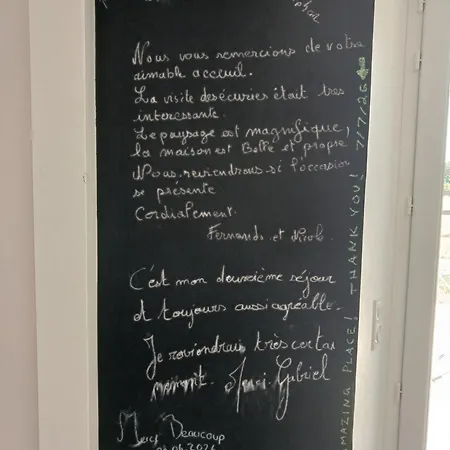 Nous vous remercions de votre
aimable acceuil.
La visite des écuries était tres
interessante.
Le paysage est magnifique,
la maison est Belle et propre
Nous reviendrons si l'occasion
se présente
Cordialement.
Fernando et Nicole.
C'est mon deuxième séjour
et toujours aussi agréable.
Je reviendrai très certai
nement. Gabriel
Merci Beaucoup
AMAZING PLACE! THANK YOU! 7/7/26